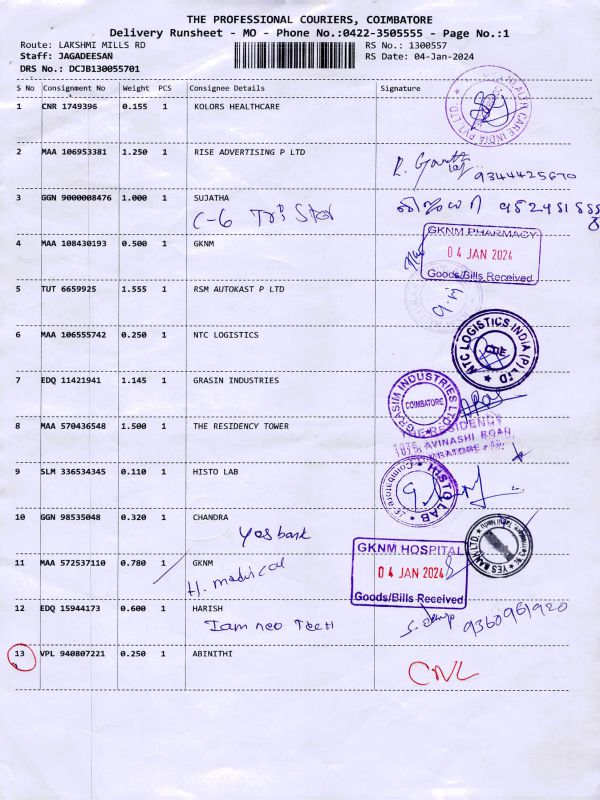 THE PROFESSIONAL COURIERS, COIMBATORE
Delivery Runsheet - MO - Phone No.:0422-3505555 - Page No.:1
Route: LAKSHMI MILLS RD RS No.: 1300557
Staff: JAGADEESAN RS Date: 04-Jan-2024
DRS No.: DCJB130055701
S No Consignment No Weight PCS Consignee Details Signature
1 CNR 1749396 0.155 1 KOLORS HEALTHCARE
2 MAA 106953381 1.250 1 RISE ADVERTISING P LTD
9344425670
3 GGN 9000008476 1.000 1 SUJATHA
C-6
GKNM PHARMACY
4 MAA 108430193 0.500 1 GKNM
04 JAN 2024
Goods/Bills Received
5 TUT 6659925 1.555 1 RSM AUTOKAST P LTD
6 MAA 106555742 0.250 1 NTC LOGISTICS
NTC LOGISTICS INDIA (P) LTD
CBE
7 EDQ 11421941 1.145 1 GRASIN INDUSTRIES
GRASIM INDUSTRIES LTD
COIMBATORE
8 MAA 570436548 1.500 1 THE RESIDENCY TOWER
THE RESIDENCY
1076, AVINASHI ROAD
COIMBATORE
9 SLM 336534345 0.110 1 HISTO LAB
HISTO LAB
Coimbatore
10 GGN 98535048 0.320 1 CHANDRA
Yes bank
YES BANK LTD.
11 MAA 572537110 0.780 1 GKNM
H. madical
GKNM HOSPITAL
04 JAN 2024
Goods/Bills Received
12 EDQ 15944173 0.600 1 HARISH
Iam neo Tech
9360961920
13 VPL 940807221 0.250 1 ABINITHI
CNL